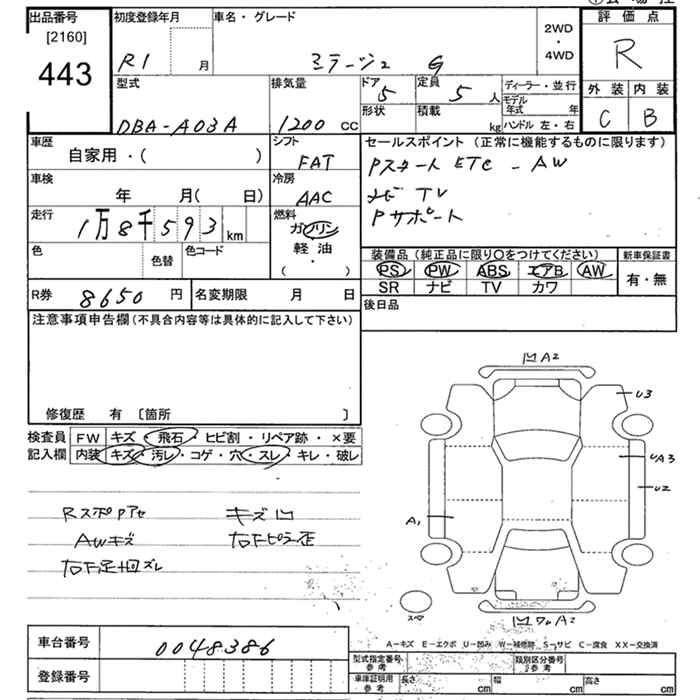 出品番号
[2160]
443
初度登録年月
R1
月
車名・グレード
ミラージュ G
2WD
・
4WD
評価点
R
外装 内装
C B
型式
DBA-A03A
排気量
1200 cc
ドア
5
定員
5 人
形状
積載
kg
ディーラー・並行
モデル年式 年
ハンドル 左・右
車歴
自家用・( )
シフト
FAT
車検
年 月( 日)
冷房
AAC
走行
1万8千593 km
燃料
ガソリン
軽油
( ・ )
色
色替
色コード
R券 8650 円
名変期限 月 日
セールスポイント (正常に機能するものに限ります)
Pスタート ETC - AW
ナビ TV
Pサポート
装備品 (純正品に限り○をつけてください)
新車保証書
PS PW ABS エアB AW
有・無
SR ナビ TV カワ
後日品
注意事項申告欄(不具合内容等は具体的に記入して下さい)
修復歴 有 〔箇所 〕
検査員
記入欄
FW キズ・飛石・ヒビ割・リペア跡・×要
内装 キズ・汚レ・コゲ・穴・スレ・キレ・破レ
Rスポアセ キズ凹
AWキズ 右Fピラー歪
右F足回ズレ
凹A2
U3
UA3
U2
A1
スペア
A2
A-キズ E-エクボ U-凹み W-補修跡 S-サビ C-腐食 XX-交換済
車台番号 0048386
登録番号
型式指定番号
参考
類別区分番号
参考
車庫証明用
参考
長さ cm 幅 cm 高さ cm